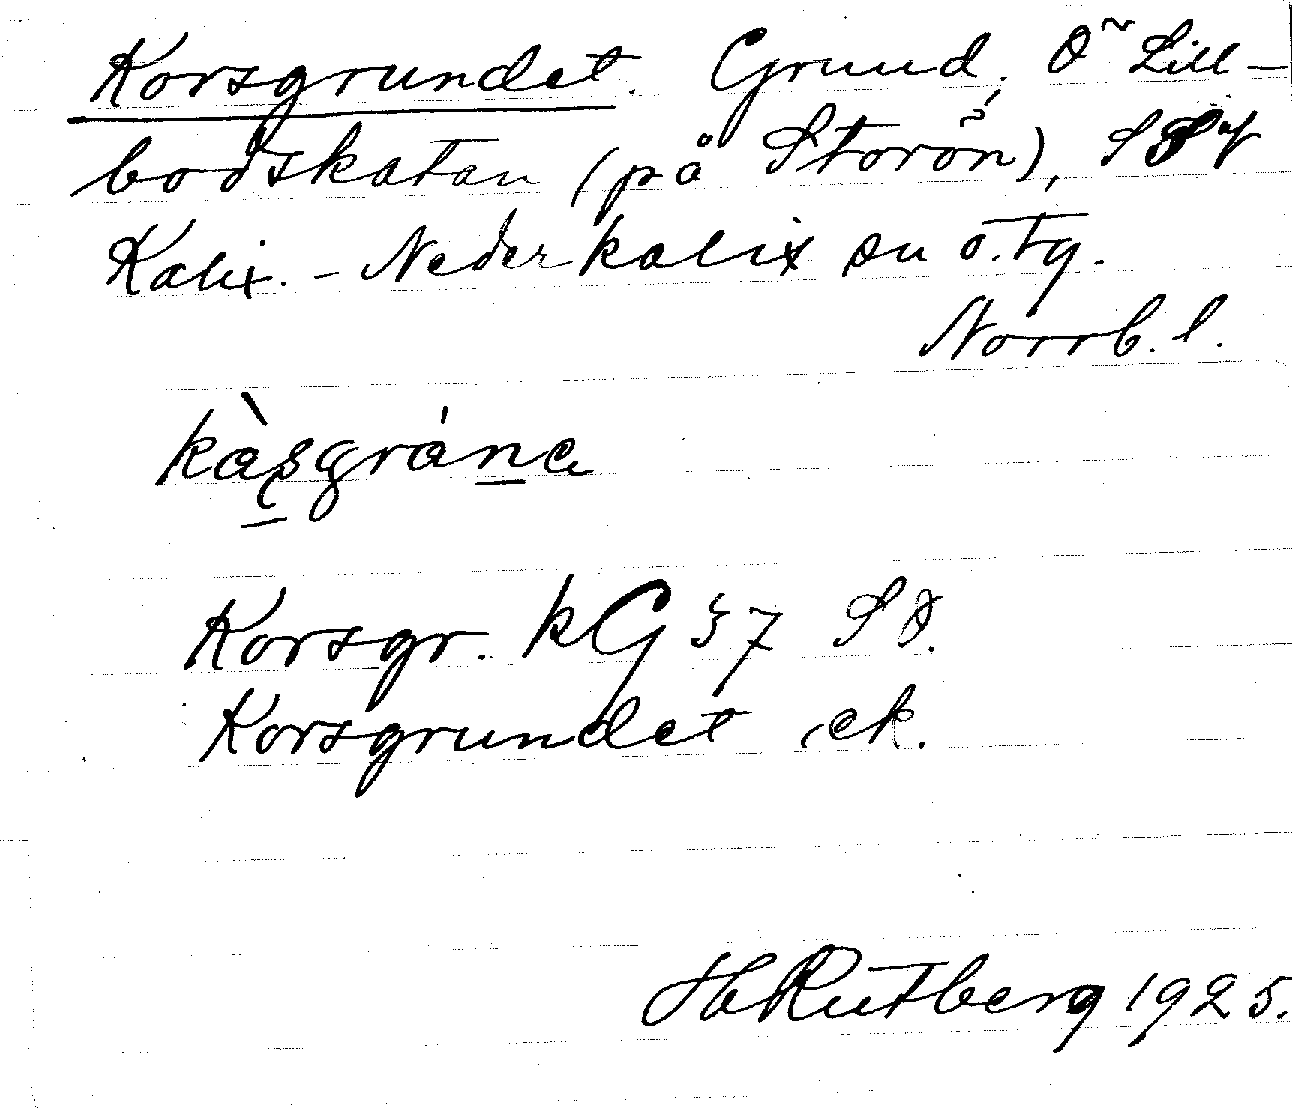 Korsgrundet. Grund, Ö Lill-
bodskatan (på Storön), SSV
Kalix. - Nederkalix sn o. tg.
Norrb. l.
kàsgránɑ
Korsgr. kG 37 SO.
Korsgrundet ek.
H Rutberg 1925.